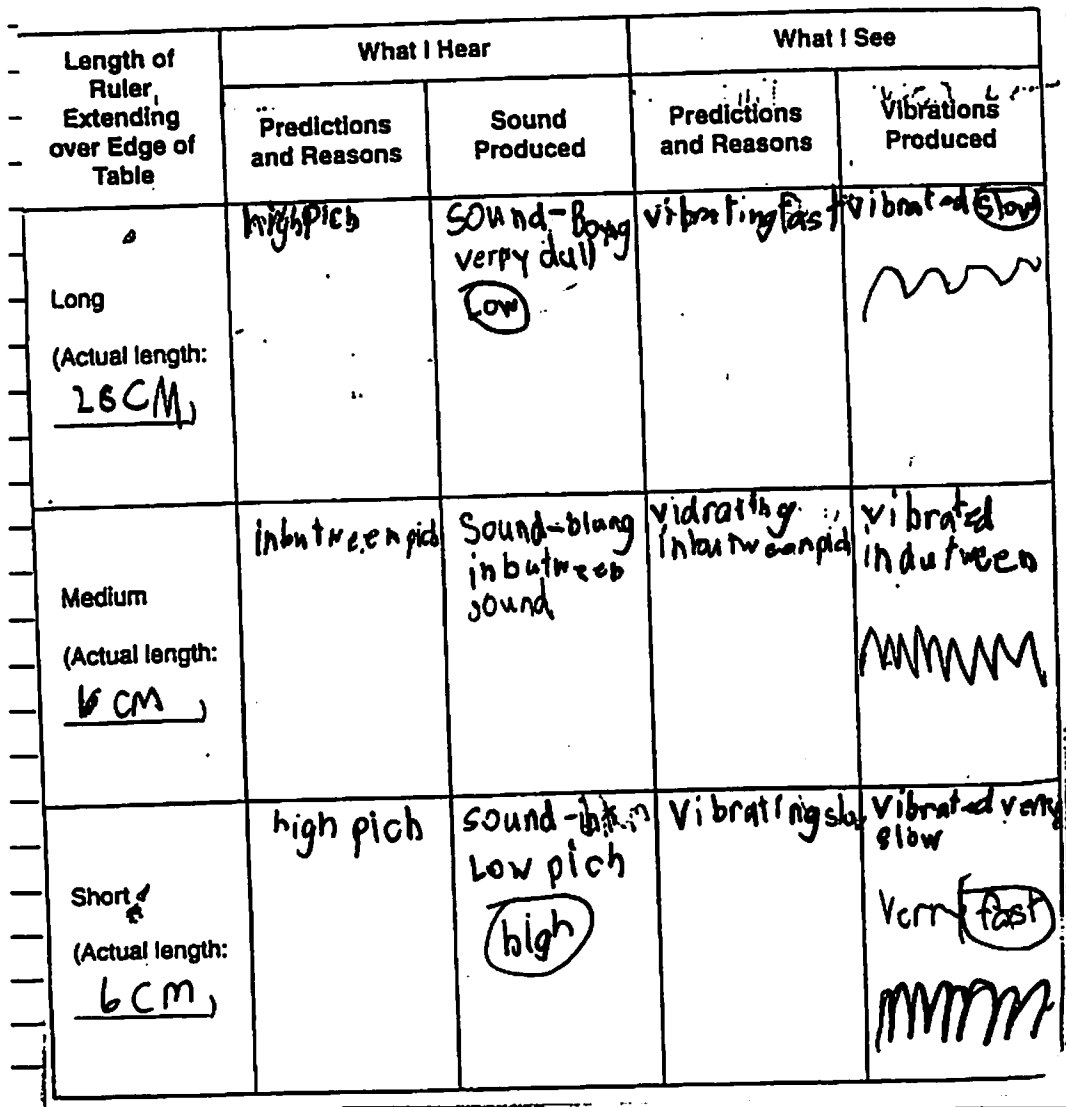 Length of
Ruler,
Extending
over Edge of
Table
What I Hear
What I See
Predictions
and Reasons
Sound
Produced
Predictions
and Reasons
Vibrations
Produced
Long
(Actual length:
CM)
high pich
Sound-Boyng
verpy dull
Low
vibrating fast
vibrated slow
Medium
(Actual length:
CM )
inbutween pich
Sound-blang
inbutween
sound
vidrating
inbutweenpich
vibrated
indutween
Short
(Actual length:
6 CM)
high pich
sound-
Low pich
high
Vibrating slow
Vibrated very
slow
fast